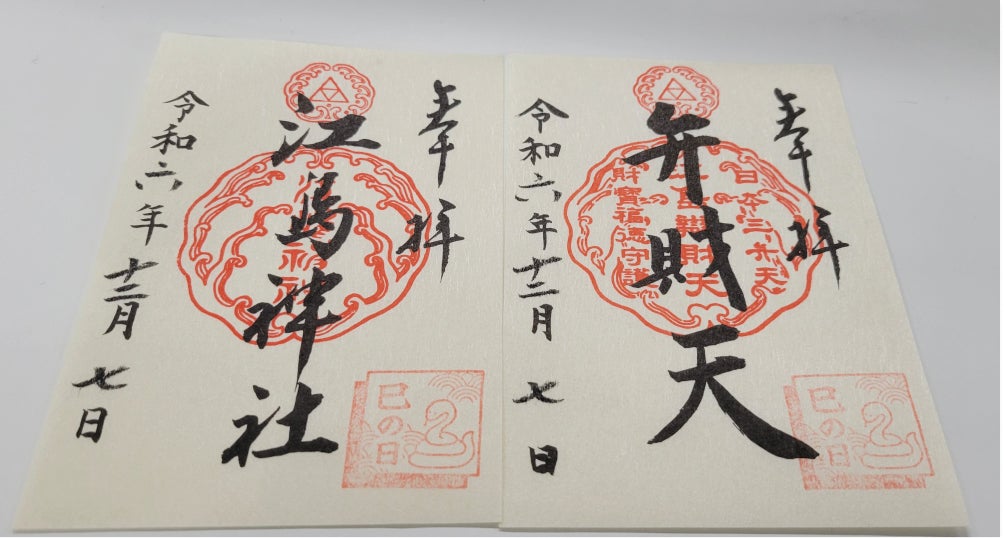 奉拝
江島神社
令和六年十二月七日
巳の日
奉拝
弁財天
日本三大弁天
財寶福徳守護
令和六年十二月七日
巳の日